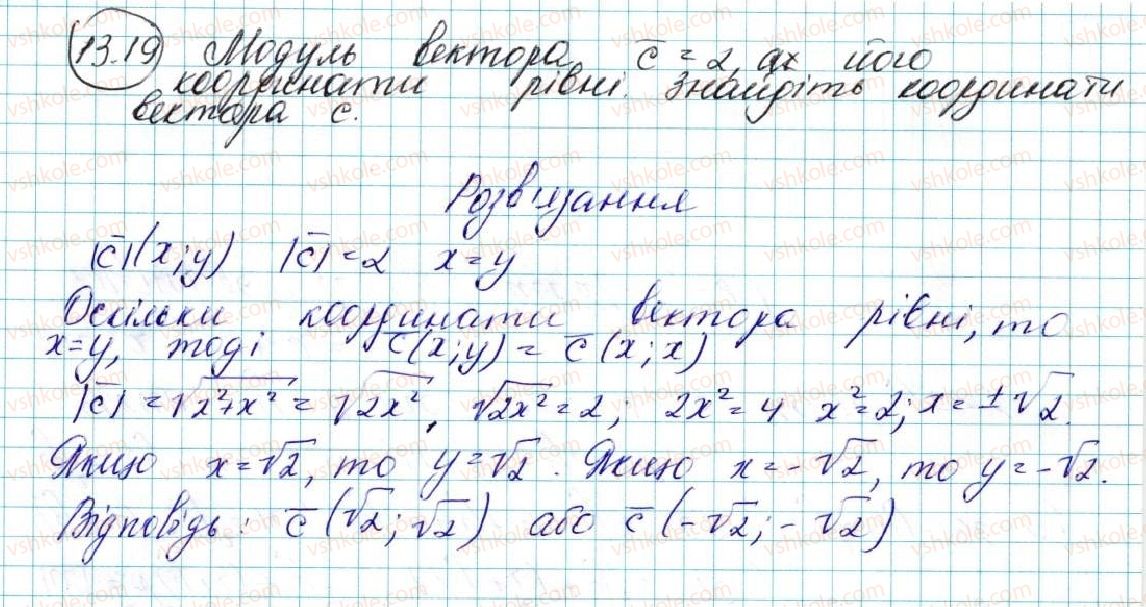 13.19 Модуль вектора c̅ = 2, ах його
координати рівні. Знайдіть координати
вектора c̅.
Розв'язання
|c̅|(x; y) |c̅| = 2 x = y
Оскільки координати вектора рівні, то
x=y, тоді c̅(x; y) = c̅(x; x)
|c̅| = √x²+x² = √2x², √2x² = 2; 2x² = 4 x² = 2; x = ±√2.
Якщо x = √2, то y = √2. Якщо x = -√2, то y = -√2.
Відповідь: c̅(√2; √2) або c̅(-√2; -√2)